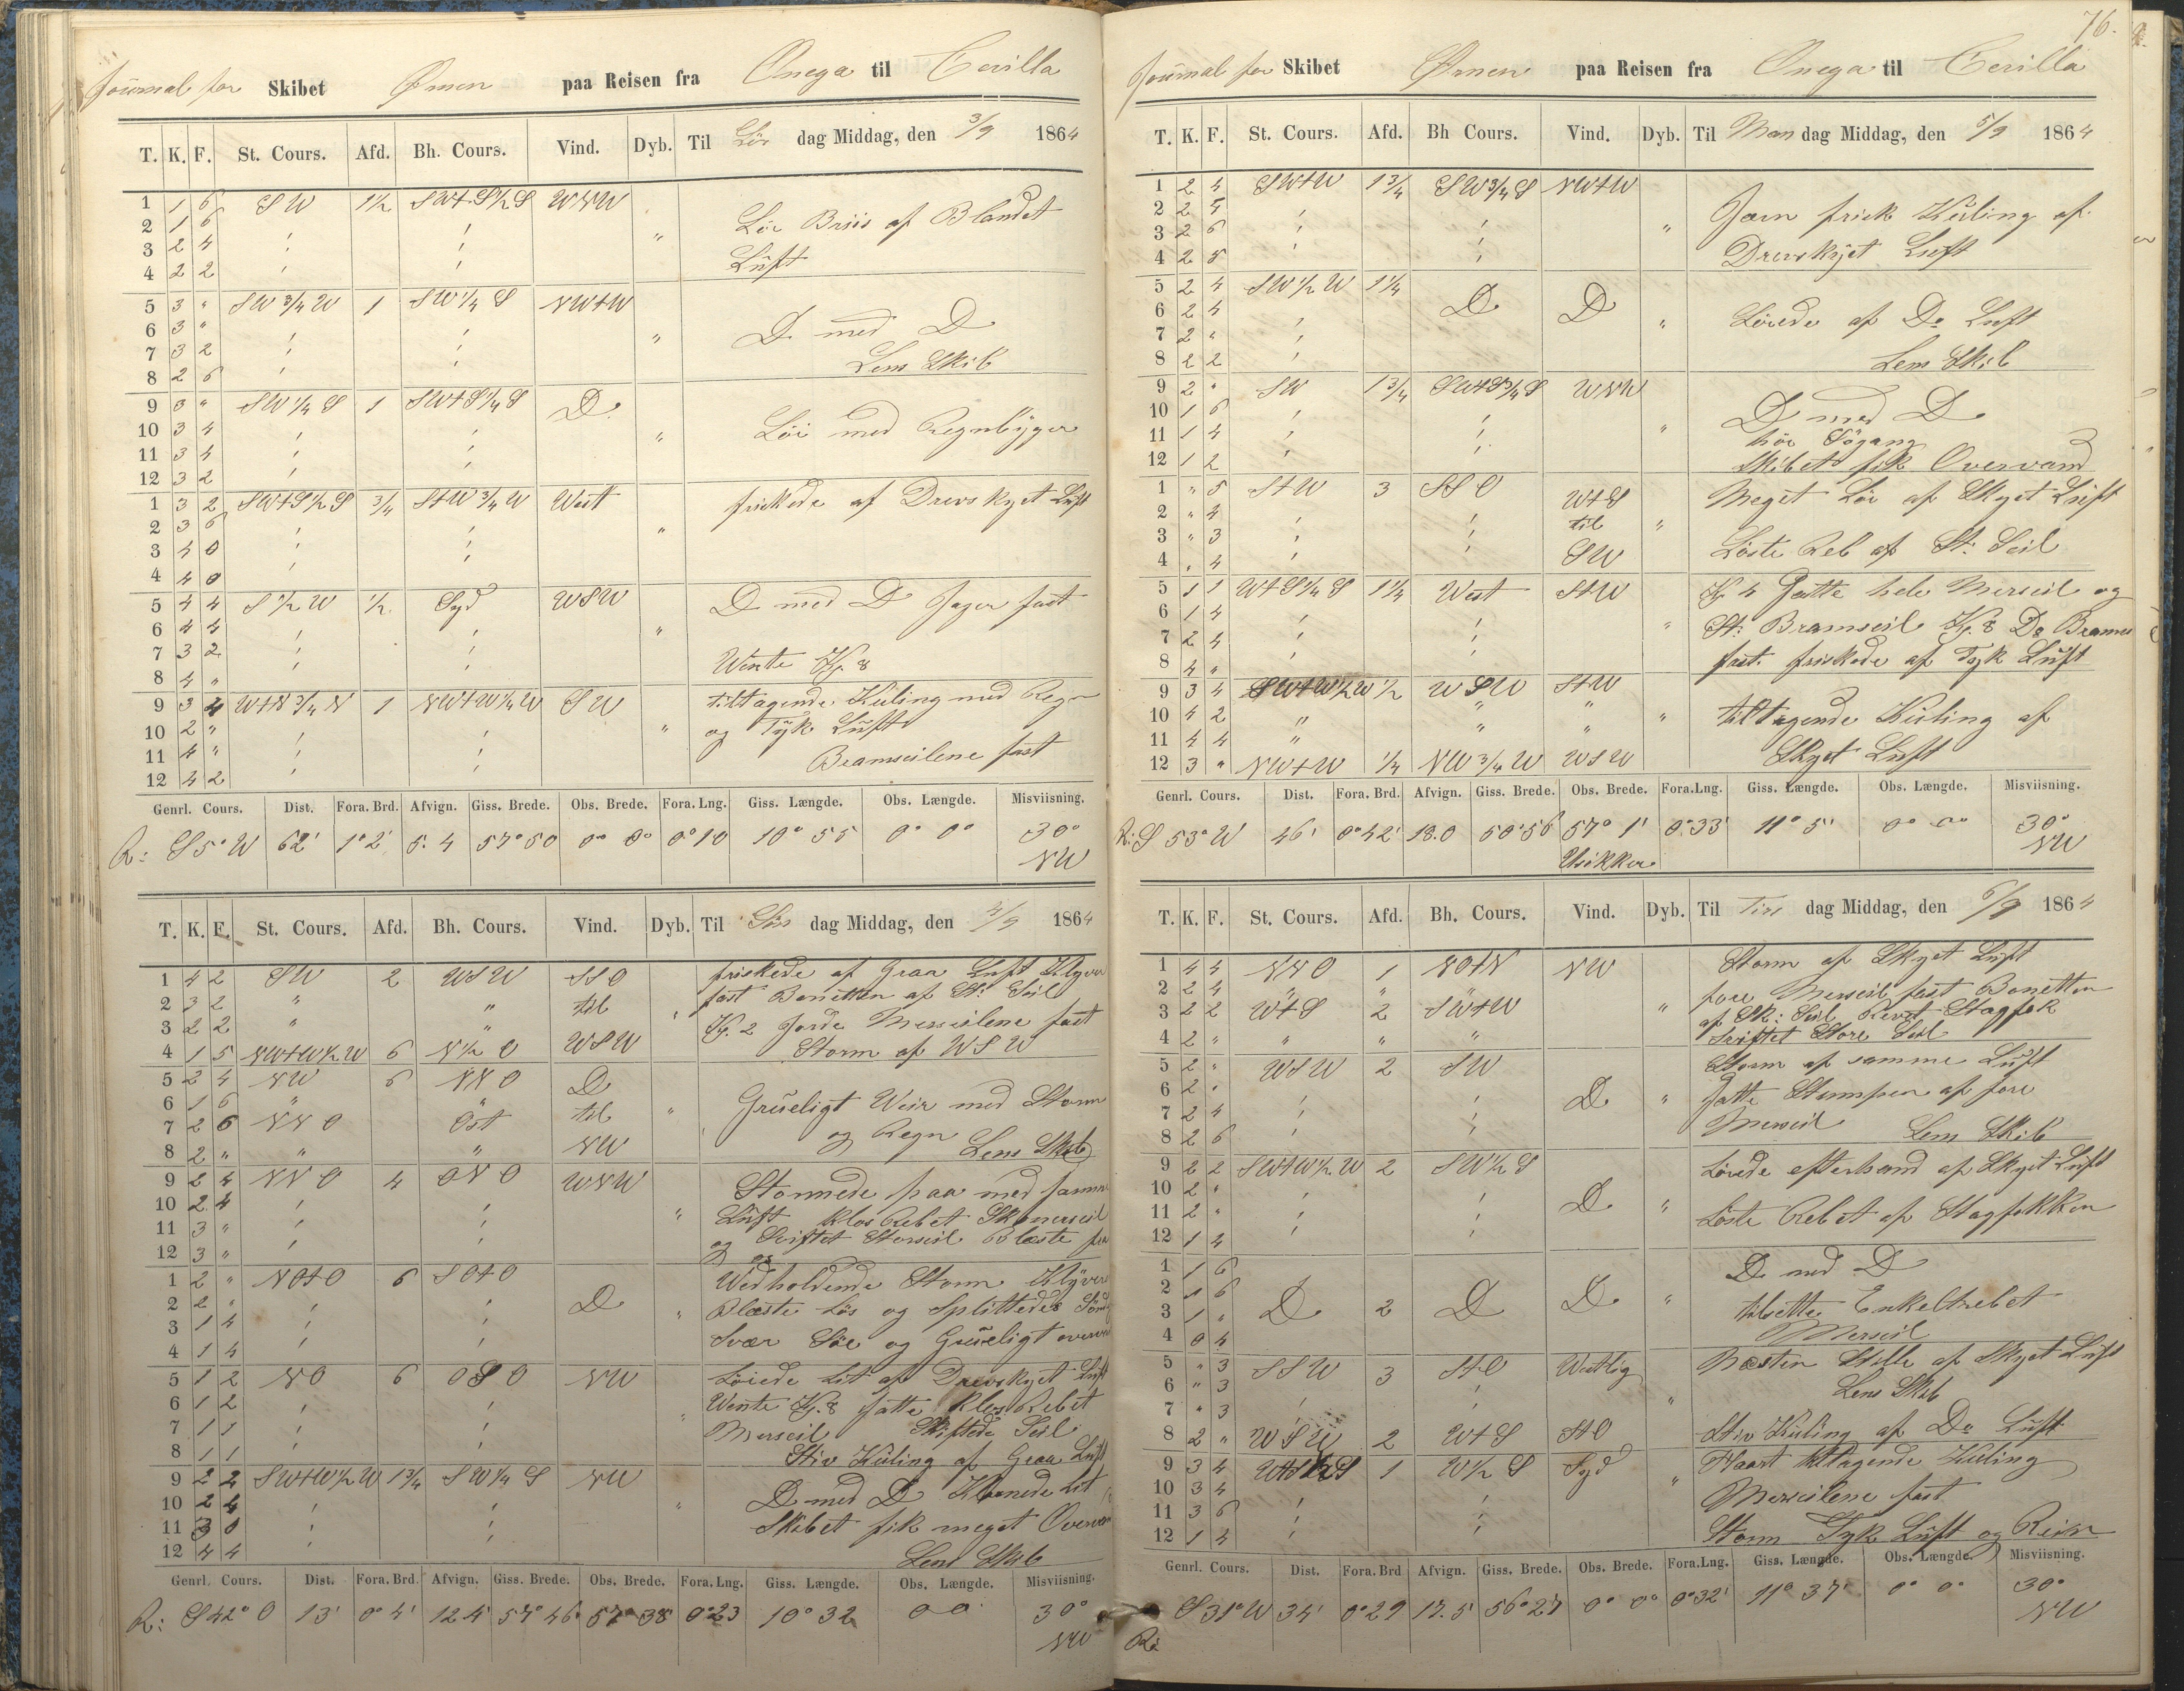 Journal for Skibet Ørnen paa Reisen fra Onega til Cevilla
T. K. F. St. Cours. Afd. Bh. Cours. Vind. Dyb. Til Lör dag Middag, den 3/9 1864
1 1 6 SW 1½ SW+S½S WNW
2 1 6 Löi Briis af Blandet
3 2 4 "
4 2 2 Luft
5 3 " SW¾W 1 SW¼S NW+W
6 3 " D med D
7 3 2 "
8 2 6 Lens Skib
9 3 " SW¼S 1 SW+S¼S D.
10 3 4 Löi med Regnbyger
11 3 4 "
12 3 2
1 3 2 SW+S½S ¾ S+W¾W West friskede af Drevskyet Luft
2 3 6 "
3 4 0
4 4 0
5 4 4 S½W ½ Syd WSW D med D Jager fast
6 4 4 "
7 3 2 Wente Kl. 8
8 4 "
9 3 4 W+N¾N 1 NW+W¼W SW tiltagende Kuling med Regn
10 2 " " og Tyk Luft
11 4 " Bramseilene fast
12 4 2
Genrl. Cours. Dist. Fora. Brd. Afvign. Giss. Brede. Obs. Brede. Fora. Lng. Giss. Længde. Obs. Længde. Misviisning.
R: S5°W 62' 1°2' 5.4 57°50 0° 0° 0°10 10°55 0° 0° 30°
NW
T. K. F. St. Cours. Afd. Bh. Cours. Vind. Dyb. Til Sön dag Middag, den 4/9 1864
1 4 2 SW 2 WSW SSO friskede af Graa Luft Klyver
2 3 2 " " til " fast Bonetten af St: Seil
3 2 2 " " Kl. 2 Gorde Merseilene fast
4 1 5 NW+W½W 6 N½O WSW Storm af WSW
5 2 4 NW 6 NNO D
6 1 6 " " til " Grueligt Weir med Storm
7 2 6 NNO Ost og Regn
8 2 " " " NW Lens Skib
9 2 4 NNO 4 ONO WNW Stormede paa med samme
10 2 4 " Luft klos Rebet
11 3 " og Sviftet Storseil Blæste
12 3 "
1 2 " NO+O 6 SO+O Wedholdende Storm Klyver
2 2 " D " Blæste Lös og Splittedes
3 1 4
4 1 4 Svær Söe og Grueligt
5 1 2 NO 6 OSO NW Löiede Lit af Drevskyet Luft
6 1 2 " Wente Kl. 8 satte klos Rebet
7 1 1 Merseil Skiftede Seil
8 1 1 Stiv Kuling af Graa Luft
9 2 2 SW+W½W 1¾ SW¼S NW
10 2 4 " D med D Lit
11 3 0 Skibet fik meget
12 4 4 Lens Skib
Genrl. Cours. Dist. Fora. Brd. Afvign. Giss. Brede. Obs. Brede. Fora. Lng. Giss. Længde. Obs. Længde. Misviisning.
R: S42°O 13' 0°4' 12.4 57°46 57°38 0°23 10°32 0 0 30°
NW
76.
Journal for Skibet Ørnen paa Reisen fra Onega til Cevilla
T. K. F. St. Cours. Afd. Bh Cours. Vind. Dyb. Til Man dag Middag, den 5/9 1864
1 2 4 SW+W 1¾ SW¾S NW+W
2 2 4 Jævn frisk Kuling af
3 2 6 "
4 2 5 Drevskyet Luft
5 2 4 SW½W 1¼ D D
6 2 4 " Löiede af Do Luft
7 2 "
8 2 2 Lens Skib
9 2 " SW 1¾ SW+S¾S WNW
10 1 6 D med D
11 1 4 " höi Sögang
12 1 2 Skibet fik Overvand
1 " 5 S+W 3 SSO W+S Meget Löi af Skyet Luft
2 " 4 til "
3 " 3 Löste Reb af St: Seil
4 " 4 SW
5 1 1 W+S¼S 1¼ West S+W Kl 4 Satte hele Merseil og
6 1 4 " St: Bramseil Kl. 8 Do
7 2 4
8 4 " fast. friskede af Tyk Luft
9 3 4 SW+W½W ½ WSW S+W
10 4 2 " " " " tiltagende Kuling af
11 4 4 " " "
12 3 " NW+W ¼ NW¾W WSW Skyet Luft
Genrl. Cours. Dist. Fora. Brd. Afvign. Giss. Brede. Obs. Brede. Fora.Lng. Giss. Længde. Obs. Længde. Misviisning.
R: S 53°W 46' 0°42' 13.0 50°56 57°1' 0°33' 11°5' 0° 0° 30°
Usikker NW
T. K. F. St. Cours. Afd. Bh. Cours. Vind. Dyb. Til Tirs dag Middag, den 6/9 1864
1 4 4 NNO 1 NO+N NW Storm af Skyet Luft
2 2 4 " " " fore Merseil fast Bonetten
3 2 2 W+S 2 SW+W " af Sk: Seil Revet Stagfok
4 2 " " " " Sviftet Store Seil
5 2 " WSW 2 SW Storm af samme Luft
6 2 " D " Satte Stumpen af fore
7 2 4 Merseil
8 2 6 Lens Skib
9 2 2 SW+W½W 2 SW½S Löiede efterhaand af Skyet Luft
10 2 " D "
11 2 " Löste Rebet af Stagfokken
12 1 4
1 1 6 D med D
2 1 6 D 2 D D "
3 1 " tilsatte Enkeltrebet
4 0 4 Merseil
5 " 3 SSW 3 S+O Westlig Næsten Stille af Skyet Luft
6 " 3 Lens Skib
7 " 3 "
8 2 " WSW 2 W+S S+O Stiv Kuling af Do Luft
9 3 4 W+S½S 1 W½S Syd Haart tiltagende Kuling
10 3 4 "
11 3 6 Merseilene fast
12 1 4 Storm Tyk Luft og Rein
Genrl. Cours. Dist. Fora. Brd Afvign. Giss. Brede. Obs. Brede. Fora.Lng. Giss. Længde. Obs. Længde. Misviisning.
S31°W 34' 0°29 17.5' 56°27 0° 0° 0°32' 11°37' 0° 0° 30°
R: NW